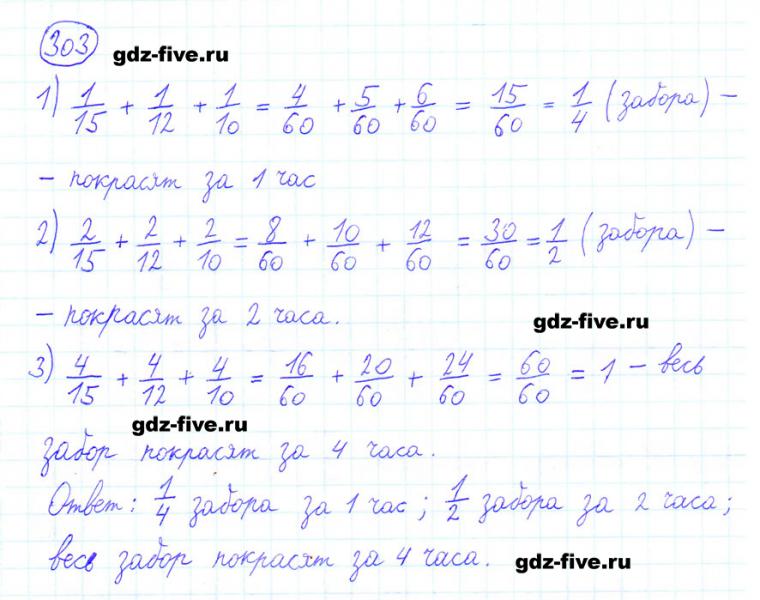 303 gdz-five.ru
1) 1/15 + 1/12 + 1/10 = 4/60 + 5/60 + 6/60 = 15/60 = 1/4 (забора) –
– покрасят за 1 час
2) 2/15 + 2/12 + 2/10 = 8/60 + 10/60 + 12/60 = 30/60 = 1/2 (забора) –
– покрасят за 2 часа.
gdz-five.ru
3) 4/15 + 4/12 + 4/10 = 16/60 + 20/60 + 24/60 = 60/60 = 1 – весь
gdz-five.ru
забор покрасят за 4 часа.
Ответ: 1/4 забора за 1 час; 1/2 забора за 2 часа;
весь забор покрасят за 4 часа.
gdz-five.ru